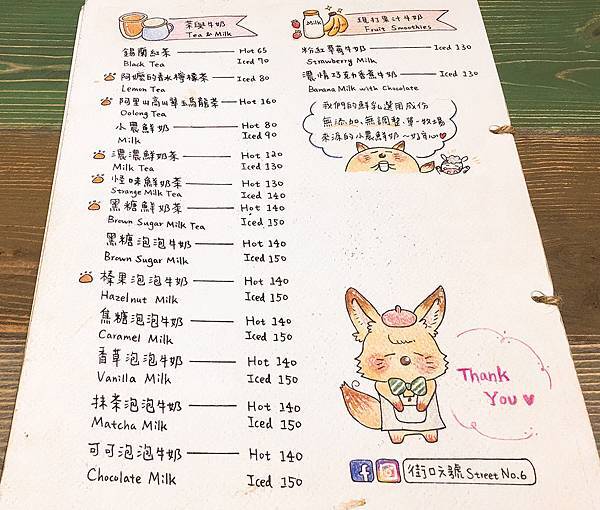 茶與牛奶
Tea & Milk
錫蘭紅茶 Hot 65
Black Tea Iced 70
阿嬤的香水檸檬茶 Iced 80
Lemon Tea
阿里山高山翠玉烏龍茶 Hot 160
Oolong Tea
小農鮮奶 Hot 80
Milk Iced 90
濃濃鮮奶茶 Hot 120
Milk Tea Iced 130
怪味鮮奶茶 Hot 130
Strange Milk Tea Iced 140
黑糖鮮奶茶 Hot 140
Brown Sugar Milk Tea Iced 150
黑糖泡泡牛奶 Hot 140
Brown Sugar Milk Iced 150
榛果泡泡牛奶 Hot 140
Hazelnut Milk Iced 150
焦糖泡泡牛奶 Hot 140
Caramel Milk Iced 150
香草泡泡牛奶 Hot 140
Vanilla Milk Iced 150
抹茶泡泡牛奶 Hot 140
Matcha Milk Iced 150
可可泡泡牛奶 Hot 140
Chocolate Milk Iced 150
Milk
現打果汁牛奶
Fruit Smoothies
粉紅草莓牛奶 Iced 130
Strawberry Milk
濃情巧克力香蕉牛奶 Iced 130
Banana Milk with Chocolate
我們的鮮乳選用成份
無添加、無調整、單一牧場
來源的小農鮮奶~
Thank
You
街口六號 Street No.6